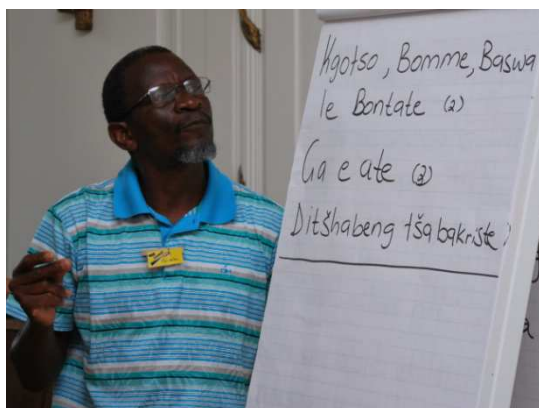 Kgotso, Bomme, Baswa
le Bontate (2)
Ga e ate (2)
Ditšhabeng tša bakriste